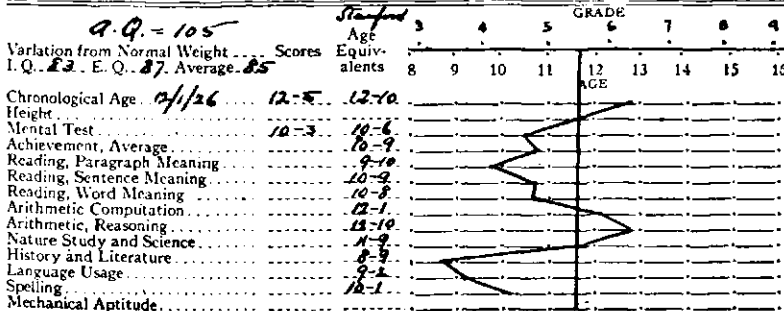 A.Q. = 105
Stanford
GRADE
Age
3 4 5 6 7 8 9
Variation from Normal Weight .... Scores Equiv-
I. Q. 83 E. Q. 87. Average 85 alents 8 9 10 11 12 13 14 15 16
AGE
Chronological Age 12/1/26 12-5 12-10
Height
Mental Test 10-3 10-6
Achievement, Average 10-9
Reading, Paragraph Meaning 9-10
Reading, Sentence Meaning 10-9
Reading, Word Meaning 10-8
Arithmetic Computation 12-1
Arithmetic, Reasoning 12-10
Nature Study and Science 11-9
History and Literature 8-9
Language Usage 9-2
Spelling 10-1
Mechanical Aptitude